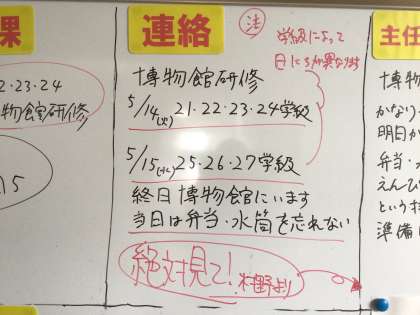 課
2・23・24
物館研修
15
連絡
注
学級によって
日にちが異なります
博物館研修
5/14(火) 21・22・23・24学級
5/15(水) 25・26・27学級
終日博物館にいます
当日は弁当・水筒を忘れない
絶対見て!
より
主任
博物
かなり
明日か
弁当・
えんぴ
というす
準備